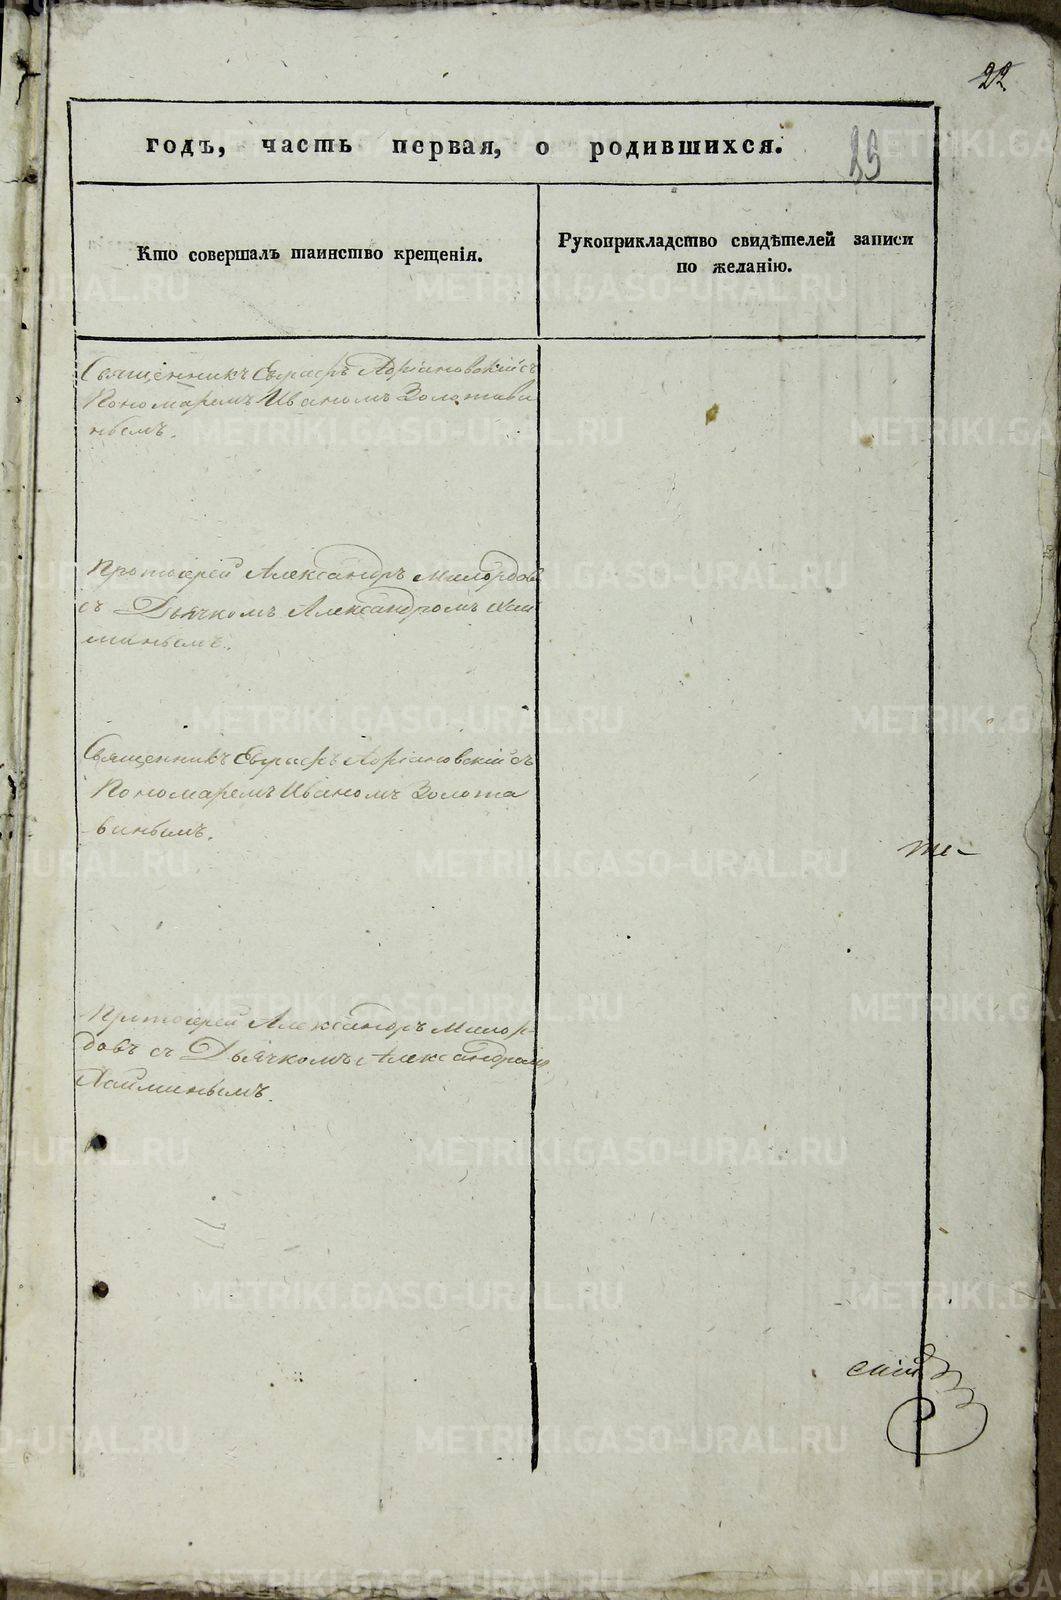 22
годъ, часть первая, о родившихся.
Кто совершалъ таинство крещенія.
Рукоприкладство свидѣтелей записи
по желанію.
Священникъ Адріановскій съ
Пономаремъ Иваномъ Золотави
нымъ.
Протоіерей Александръ Милордовъ
съ Дьячкомъ Александромъ
Священникъ Адріановскій съ
Пономаремъ Иваномъ Золота
винымъ.
Протоіерей Александръ Милор-
довъ съ Дьячкомъ Александромъ
скій
METRIKI.GASO-URAL.RU